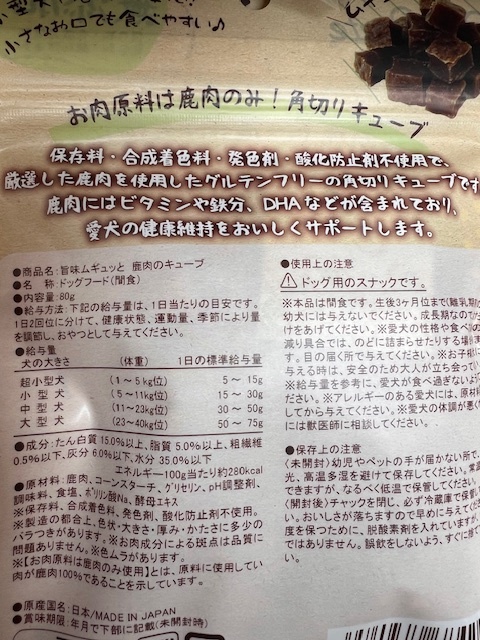 小さなお口でも食べやすい♪
お肉原料は鹿肉のみ！角切りキューブ
保存料・合成着色料・発色剤・酸化防止剤不使用で、
厳選した鹿肉を使用したグルテンフリーの角切りキューブです
鹿肉にはビタミンや鉄分、DHAなどが含まれており、
愛犬の健康維持をおいしくサポートします。
●商品名：旨味ムギュッと 鹿肉のキューブ
●名　称：ドッグフード（間食）
●内容量：80g
●給与方法：下記の給与量は、1日当たりの目安です。
1日2回位に分けて、健康状態、運動量、季節により量
を調節し、おやつとして与えてください。
●給与量
犬の大きさ　（体重）　1日の標準給与量
超小型犬　（1～5kg位）　5～15g
小型犬　（5～11kg位）　15～30g
中型犬　（11～23kg位）　30～50g
大型犬　（23～40kg位）　50～75g
●成分：たん白質15.0%以上、脂質5.0%以上、粗繊維
0.5%以下、灰分6.0%以下、水分35.0%以下
エネルギー100g当たり約280kcal
●原材料：鹿肉、コーンスターチ、グリセリン、pH調整剤、
調味料、食塩、ポリリン酸Na、酵母エキス
※保存料、合成着色料、発色剤、酸化防止剤不使用。
※製造の都合上、色状・大きさ・厚み・かたさに多少の
バラつきがあります。※お肉成分による斑点は品質に
問題ありません。※色ムラがあります。
※【お肉原料は鹿肉のみ使用】とは、原料に使用してい
肉が鹿肉100%であることを示しています。
●原産国名：日本/MADE IN JAPAN
●賞味期限：年月で下部に記載（未開封時）
●使用上の注意
ドッグ用のスナックです。
※本品は間食です。生後3ヶ月位まで（離乳期
幼犬には与えないでください。成長期なので
けをあげてください。※愛犬の性格や食べ
減り具合では、のどに詰まらせたりする場
す。目の届く所で与えてください。※お子様に
与える時は、安全のため大人が立ち会ってい
※給与量を参考に、愛犬が食べ過ぎないよう
ださい。※アレルギーのある愛犬には、原材
してから与えてください。※愛犬の体調が悪く
には獣医師に相談してください。
●保存上の注意
〈未開封〉幼児やペットの手が届かない所で、
光、高温多湿を避けて保存してください。常温
できますが、なるべく低温で保管してください。
〈開封後〉チャックを閉じ、必ず冷蔵庫で保管し
い。おいしさが落ちますので早めに与えてくだ
度を保つために、脱酸素剤を入れていますが、
ではありません。誤飲をしないよう、すぐに捨て
い。